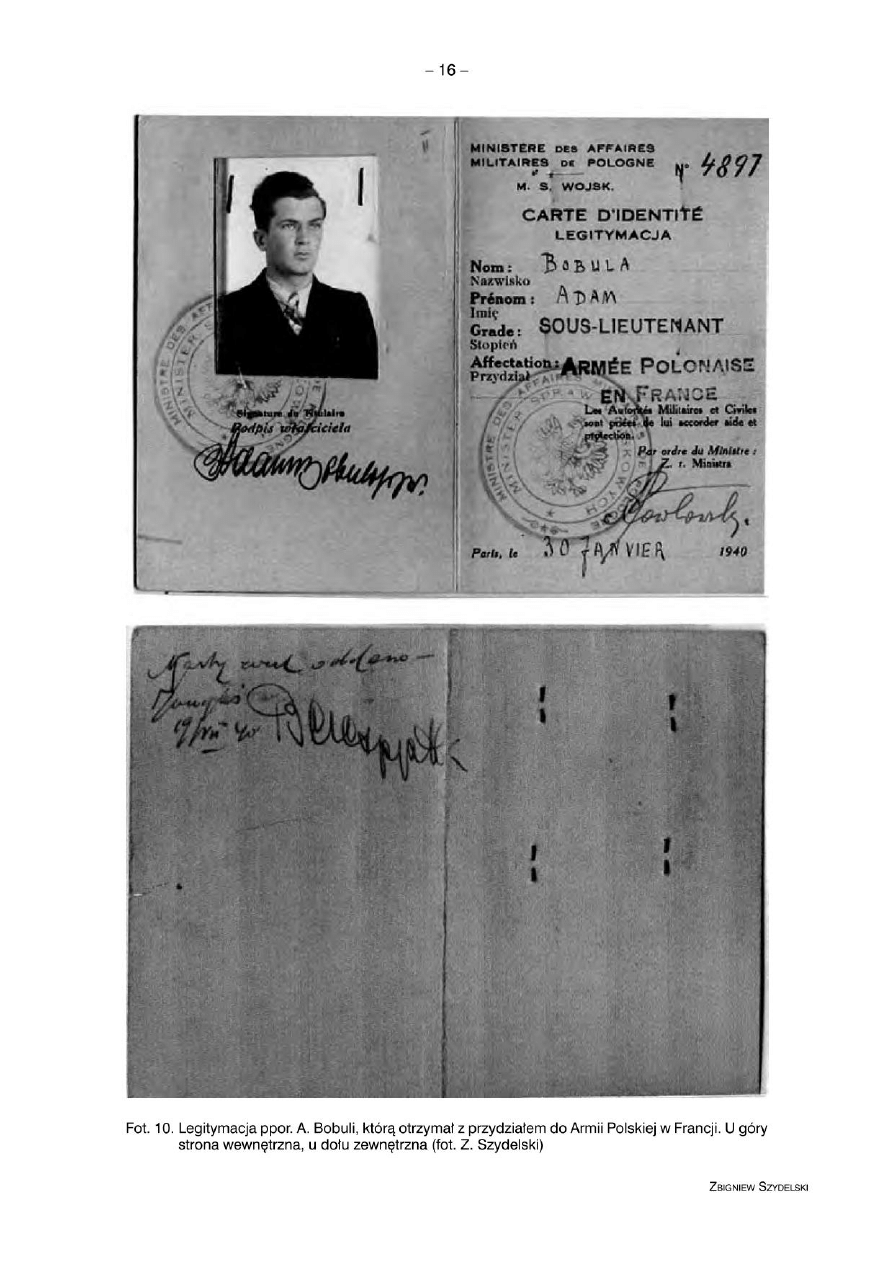 – 16 –
MINISTÈRE DES AFFAIRES
MILITAIRES DE POLOGNE
M. S. WOJSK.
N° 4897
CARTE D'IDENTITÉ
LEGITYMACJA
Nom : BOBULA
Nazwisko
Prénom : ADAM
Imię
Grade : SOUS-LIEUTENANT
Stopień
Affectation : ARMÉE POLONAISE
Przydział
EN FRANCE
Les Autorités Militaires et Civiles
sont priées de lui accorder aide et
protection.
Par ordre du Ministre :
Z. r. Ministra
Paris, le 30 JANVIER 1940
Signature du Titulaire
Podpis właściciela
MINISTRE DES AFFAIRES
oddano –
Fot. 10. Legitymacja ppor. A. Bobuli, którą otrzymał z przydziałem do Armii Polskiej w Francji. U góry
strona wewnętrzna, u dołu zewnętrzna (fot. Z. Szydelski)
ZBIGNIEW SZYDELSKI